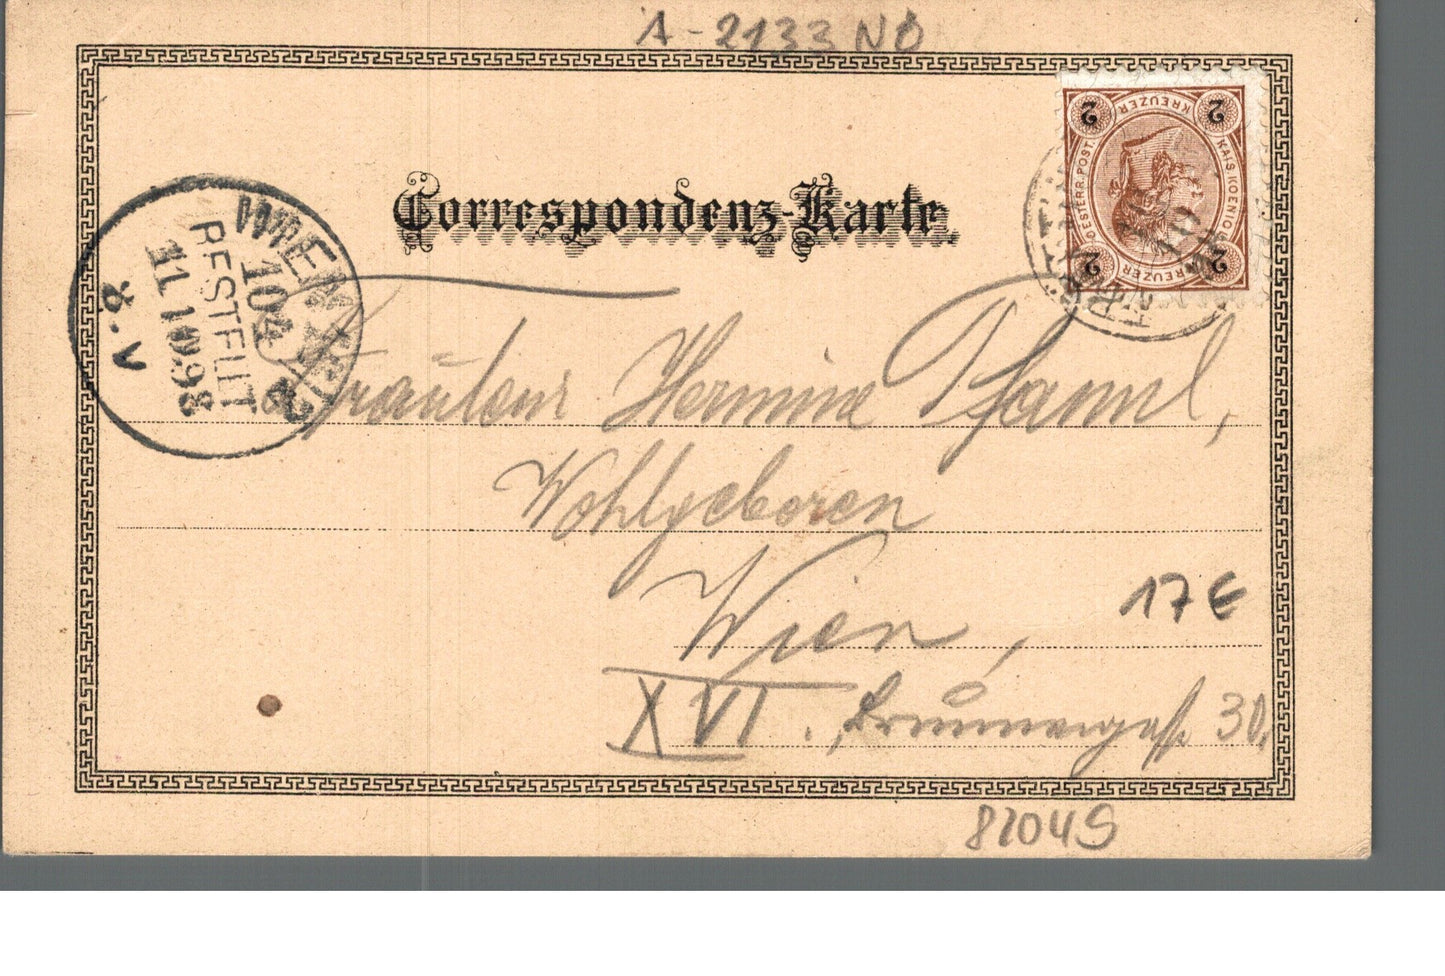 A-2133 NÖ
Correspondenz-Karte
2 KREUZER 2
OESTERR. POST. KAIS. KOENIGL.
2 KREUZER 2
WIEN
104
BESTELLT
11 10.98
Fräulein Hermine Pfannl,
Wohlgeboren
Wien,
XVI., Brunnengasse 30.
17 €
82049